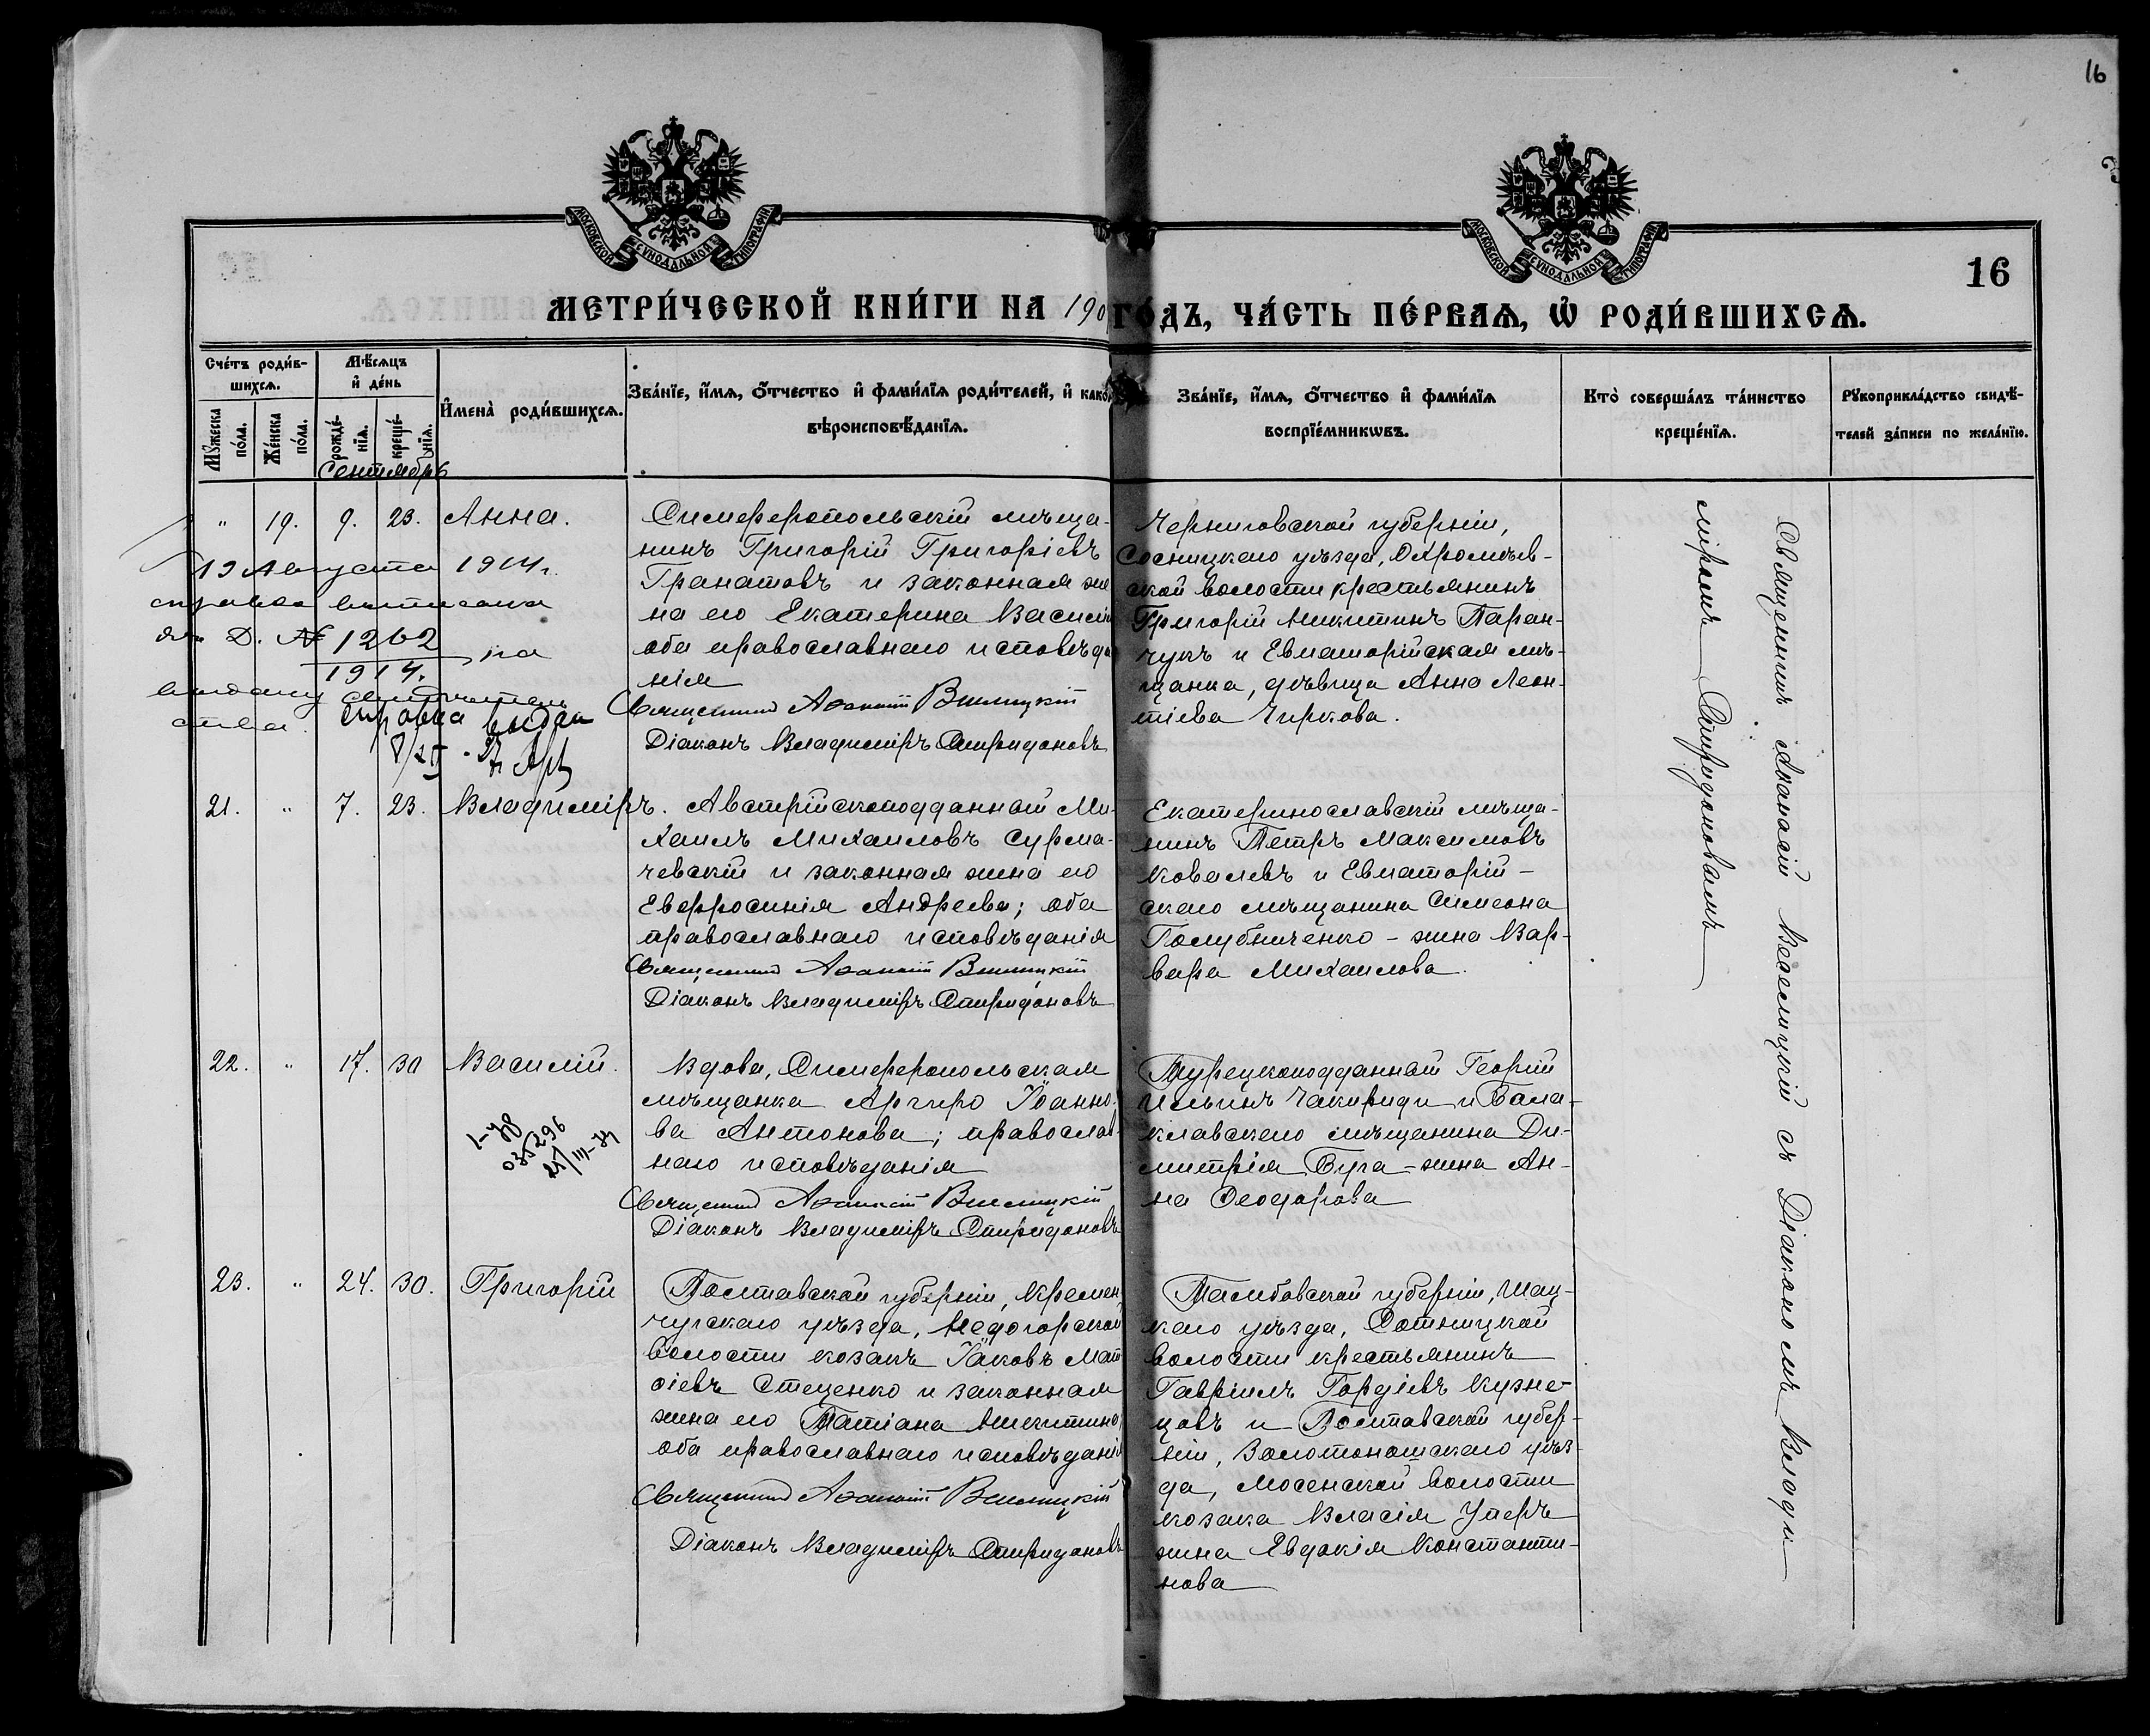 16
МОСКОВСКОЙ СѴНОДАЛЬНОЙ ТИПОГРАФІИ
МОСКОВСКОЙ СѴНОДАЛЬНОЙ ТИПОГРАФІИ
16
МЕТРИ́ЧЕСКОЙ КНИ́ГИ НА 190 ГО́ДЪ, ЧА́СТЬ ПЕ́РВАѦ, Ѡ҆ РОДИ́ВШИХСѦ.
Сче́тъ роди́в-
шихсѧ.
Мꙋжеска
по́ла.
Же́нска
по́ла.
Мѣ́сѧцъ
и҆ де́нь
рожде́-
нїѧ.
креще́-
нїѧ.
И҆мена̀ роди́вшихсѧ.
Зва́нїе, и҆́мѧ, ѻ҆́тчество и҆ фами́лїѧ роди́телей, и҆ како́
вѣроисповѣ́данїѧ.
Зва́нїе, и҆́мѧ, ѻ҆́тчество и҆ фами́лїѧ
воспрїе́мникѡвъ.
Кто̀ соверша́лъ та́инство
креще́нїѧ.
Рꙋкоприкла́дство свидѣ́-
телей за́писи по жела́нїю.
Сентябрь
" 19. 9. 23. Анна.
Симферопольскій мѣща-
нинъ Григорій Григоріевъ
Гранатовъ и законная же
на его Екатерина Василі
оба православнаго исповѣда
нія
Священникъ Аѳанасій
Діаконъ Владиміръ Спиридоновъ
Черниговской губерніи,
Сосницкаго уѣзда, Охромѣев-
ской волости крестьянинъ
Григорій Никитинъ Таран-
чукъ и Евпаторійская мѣ-
щанка, дѣвица Анна Леон-
тіева Чиркова.
13 Августа 1914 г.
справка выписана
№ 1262
1914. на
выдачу свидѣтель
ства.
справка выдан
21. " 7. 23. Владиміръ.
Австрійскоподданный Ми-
хаилъ Михаиловъ Сурма-
чевскій и законная жена его
Евфросинія Андреева; оба
православнаго исповѣданія
Священникъ Аѳанасій
Діаконъ Владиміръ Спиридоновъ
Екатеринославскій мѣща-
нинъ Петръ Максимовъ
Ковалевъ и Евпаторій-
скаго мѣщанина Симеона
Голубниченко - жена Вар-
вара Михаилова.
22. " 17. 30 Василій.
Вдова, Симферопольская
мѣщанка Аргиро Іоанно-
ва Антонова; православ-
наго исповѣданія
Священникъ Аѳанасій
Діаконъ Владиміръ Спиридоновъ
Турецкоподданный Георгій
Ильинъ Чакириди и Бала-
клавскаго мѣщанина Ди-
митрія Буга - жена Ан-
на Ѳеодорова
035296
25/III-
23. " 24. 30. Григорій
Полтавской губерніи, Кремен
чугскаго уѣзда, Недогарской
волости козакъ Іаковъ Мат
ѳіевъ Стеценко и законная
жена его Татіана Никитина
оба православнаго исповѣданія
Священникъ Аѳанасій
Діаконъ Владиміръ Спиридоновъ
Тамбовской губерніи, Шац-
каго уѣзда, Сотницкой
волости крестьянинъ
Гавріилъ Гордіевъ Кузне-
цовъ и Полтавской губер-
ніи, Золотоношскаго уѣз-
да, Мосенской волости
козака Власія Уперъ
жена Евдокія Константи-
нова
Священникъ Аѳанасій съ Діакономъ Влади-
міромъ Спиридоновымъ